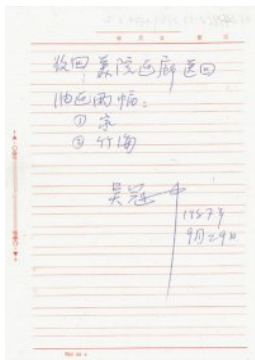 收回美院画廊送回
油画两幅：
① 京
② 竹海
吴冠中
1987年
9月29日